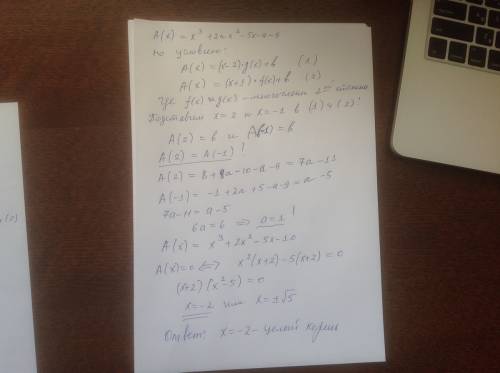 A(x) = x³ + 2ax² - 5x - a - 9
По условию:
A(x) = (x-2)·g(x) + b (1)
A(x) = (x+1)·f(x) + b (2)
Где f(x) и g(x) - многочлены 2ой степени
Подставим x = 2 и x = -1 в (1) и (2)!
A(2) = b и A(-1) = b
A(2) = A(-1) !
A(2) = 8 + 8a - 10 - a - 9 = 7a - 11
A(-1) = -1 + 2a + 5 - a - 9 = a - 5
7a - 11 = a - 5
6a = 6 ⟹ a = 1 !
A(x) = x³ + 2x² - 5x - 10
A(x) = 0 ⟺ x²(x+2) - 5(x+2) = 0
(x+2)(x² - 5) = 0
x = -2 или x = ±√5
Ответ: x = -2 - целый корень